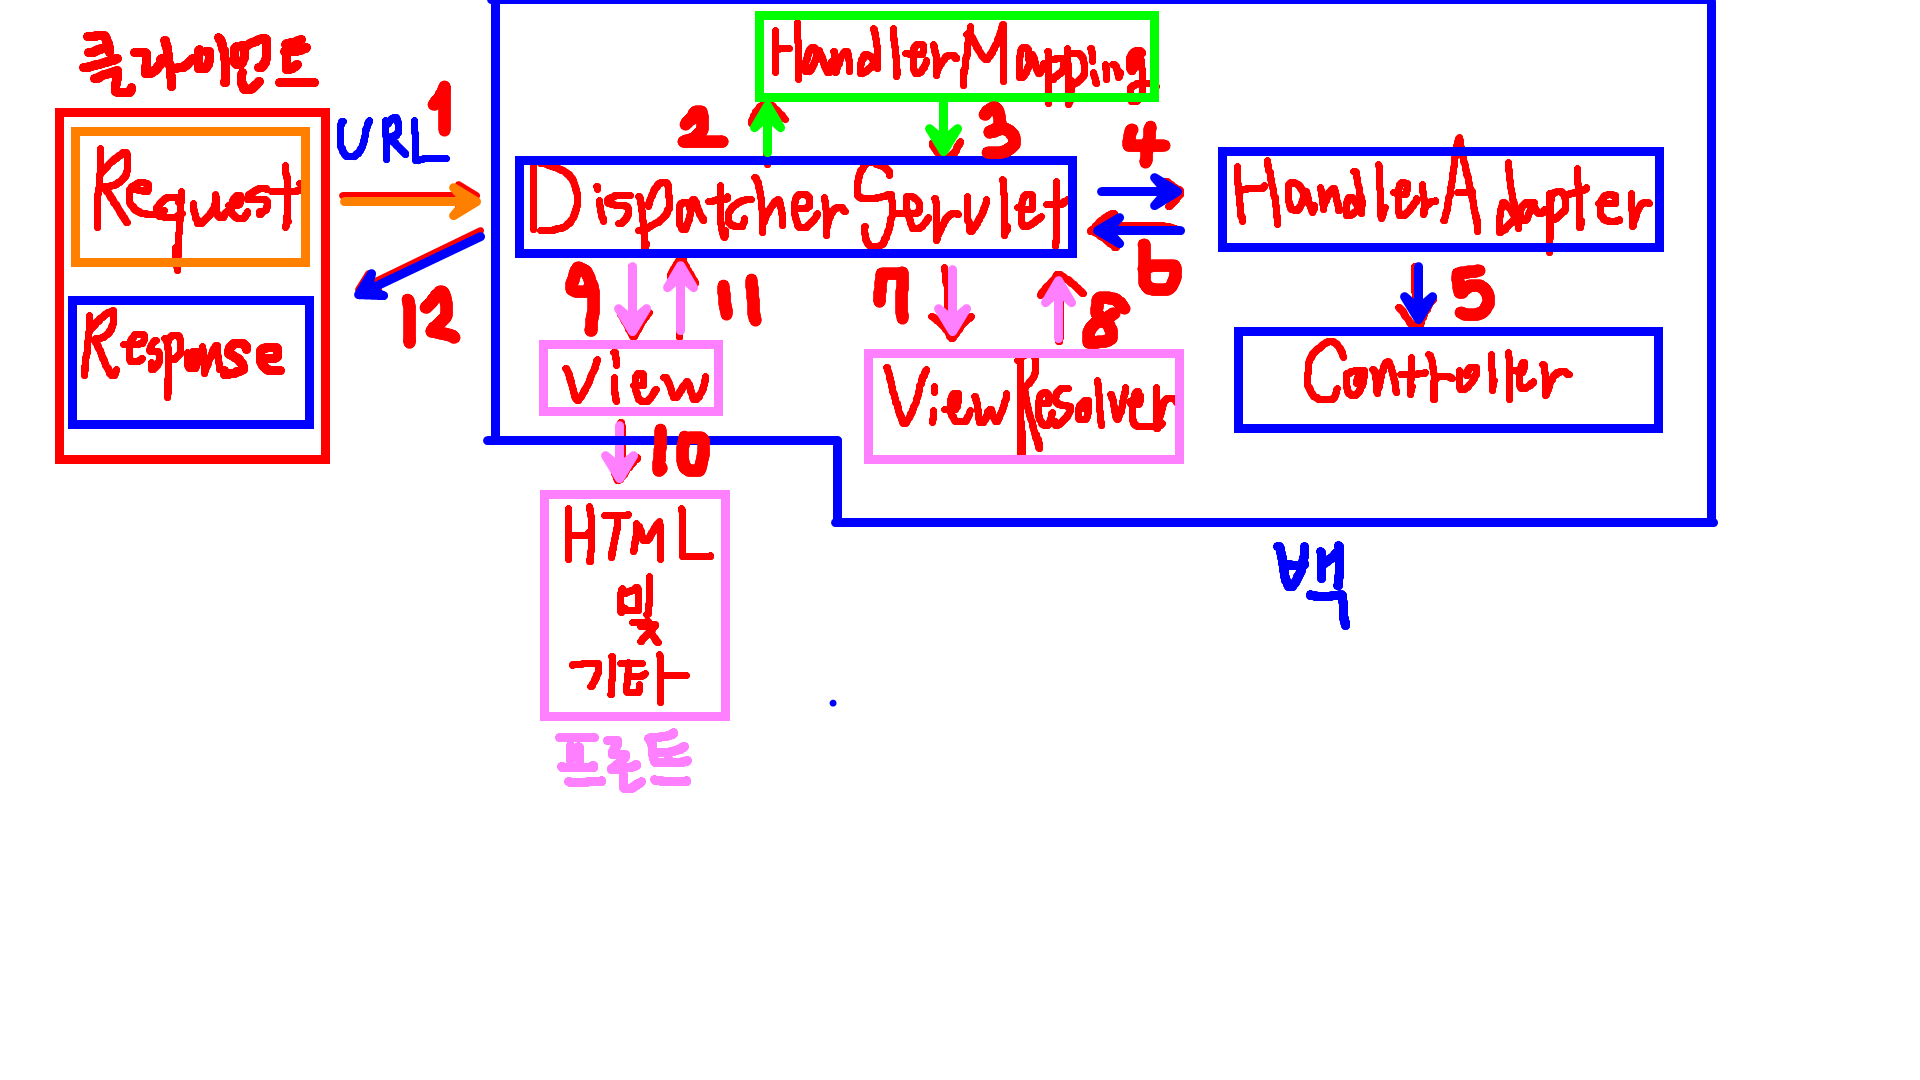 클라이언트
Request
Response
URL
1
12
HandlerMapping
2
3
DispatcherServlet
4
6
HandlerAdapter
5
Controller
9
11
7
8
View
ViewResolver
10
HTML
및
기타
프론트
백